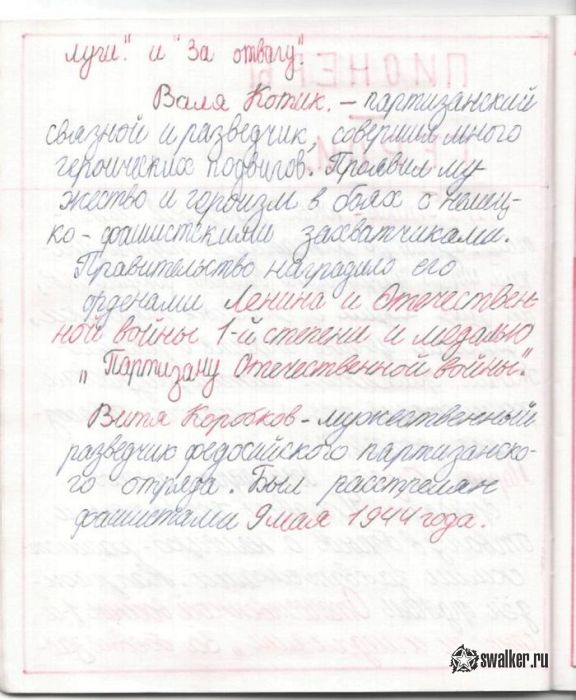 луги". и "За отвагу".
Валя Котик. - партизанский
связной и разведчик, совершил много
героических подвигов. Проявил му-
жество и героизм в боях с немец-
ко-фашистскими захватчиками.
Правительство наградило его
орденами Ленина и Отечествен-
ной войны 1-й степени и медалью
"Партизану Отечественной войны".
Витя Коробков - мужественный
разведчик федосийского партизанско-
го отряда. Был расстрелян
фашистами 9 мая 1944 года.
swalker.ru